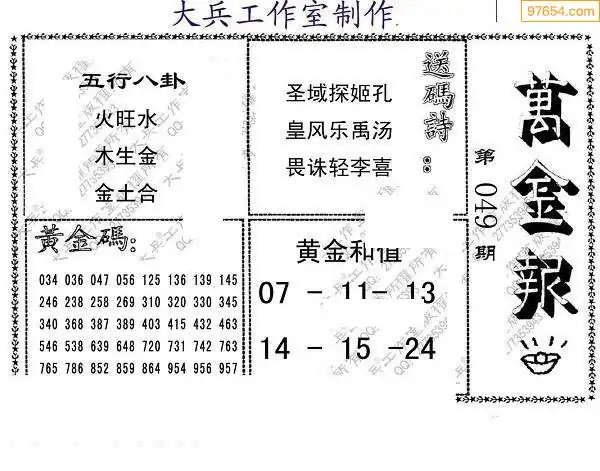 大兵工作室制作
97654.com
五行八卦
火旺水
木生金
金土合
送碼詩：
圣域探姬孔
皇风乐禹汤
畏诛轻李喜
萬金報
第049期
黃金碼：
034 036 047 056 125 136 139 145
246 238 258 269 310 320 330 345
340 368 387 389 403 415 432 463
546 538 639 648 720 731 742 763
765 786 852 859 864 954 956 957
黄金和值
07 - 11- 13
14 - 15 -24